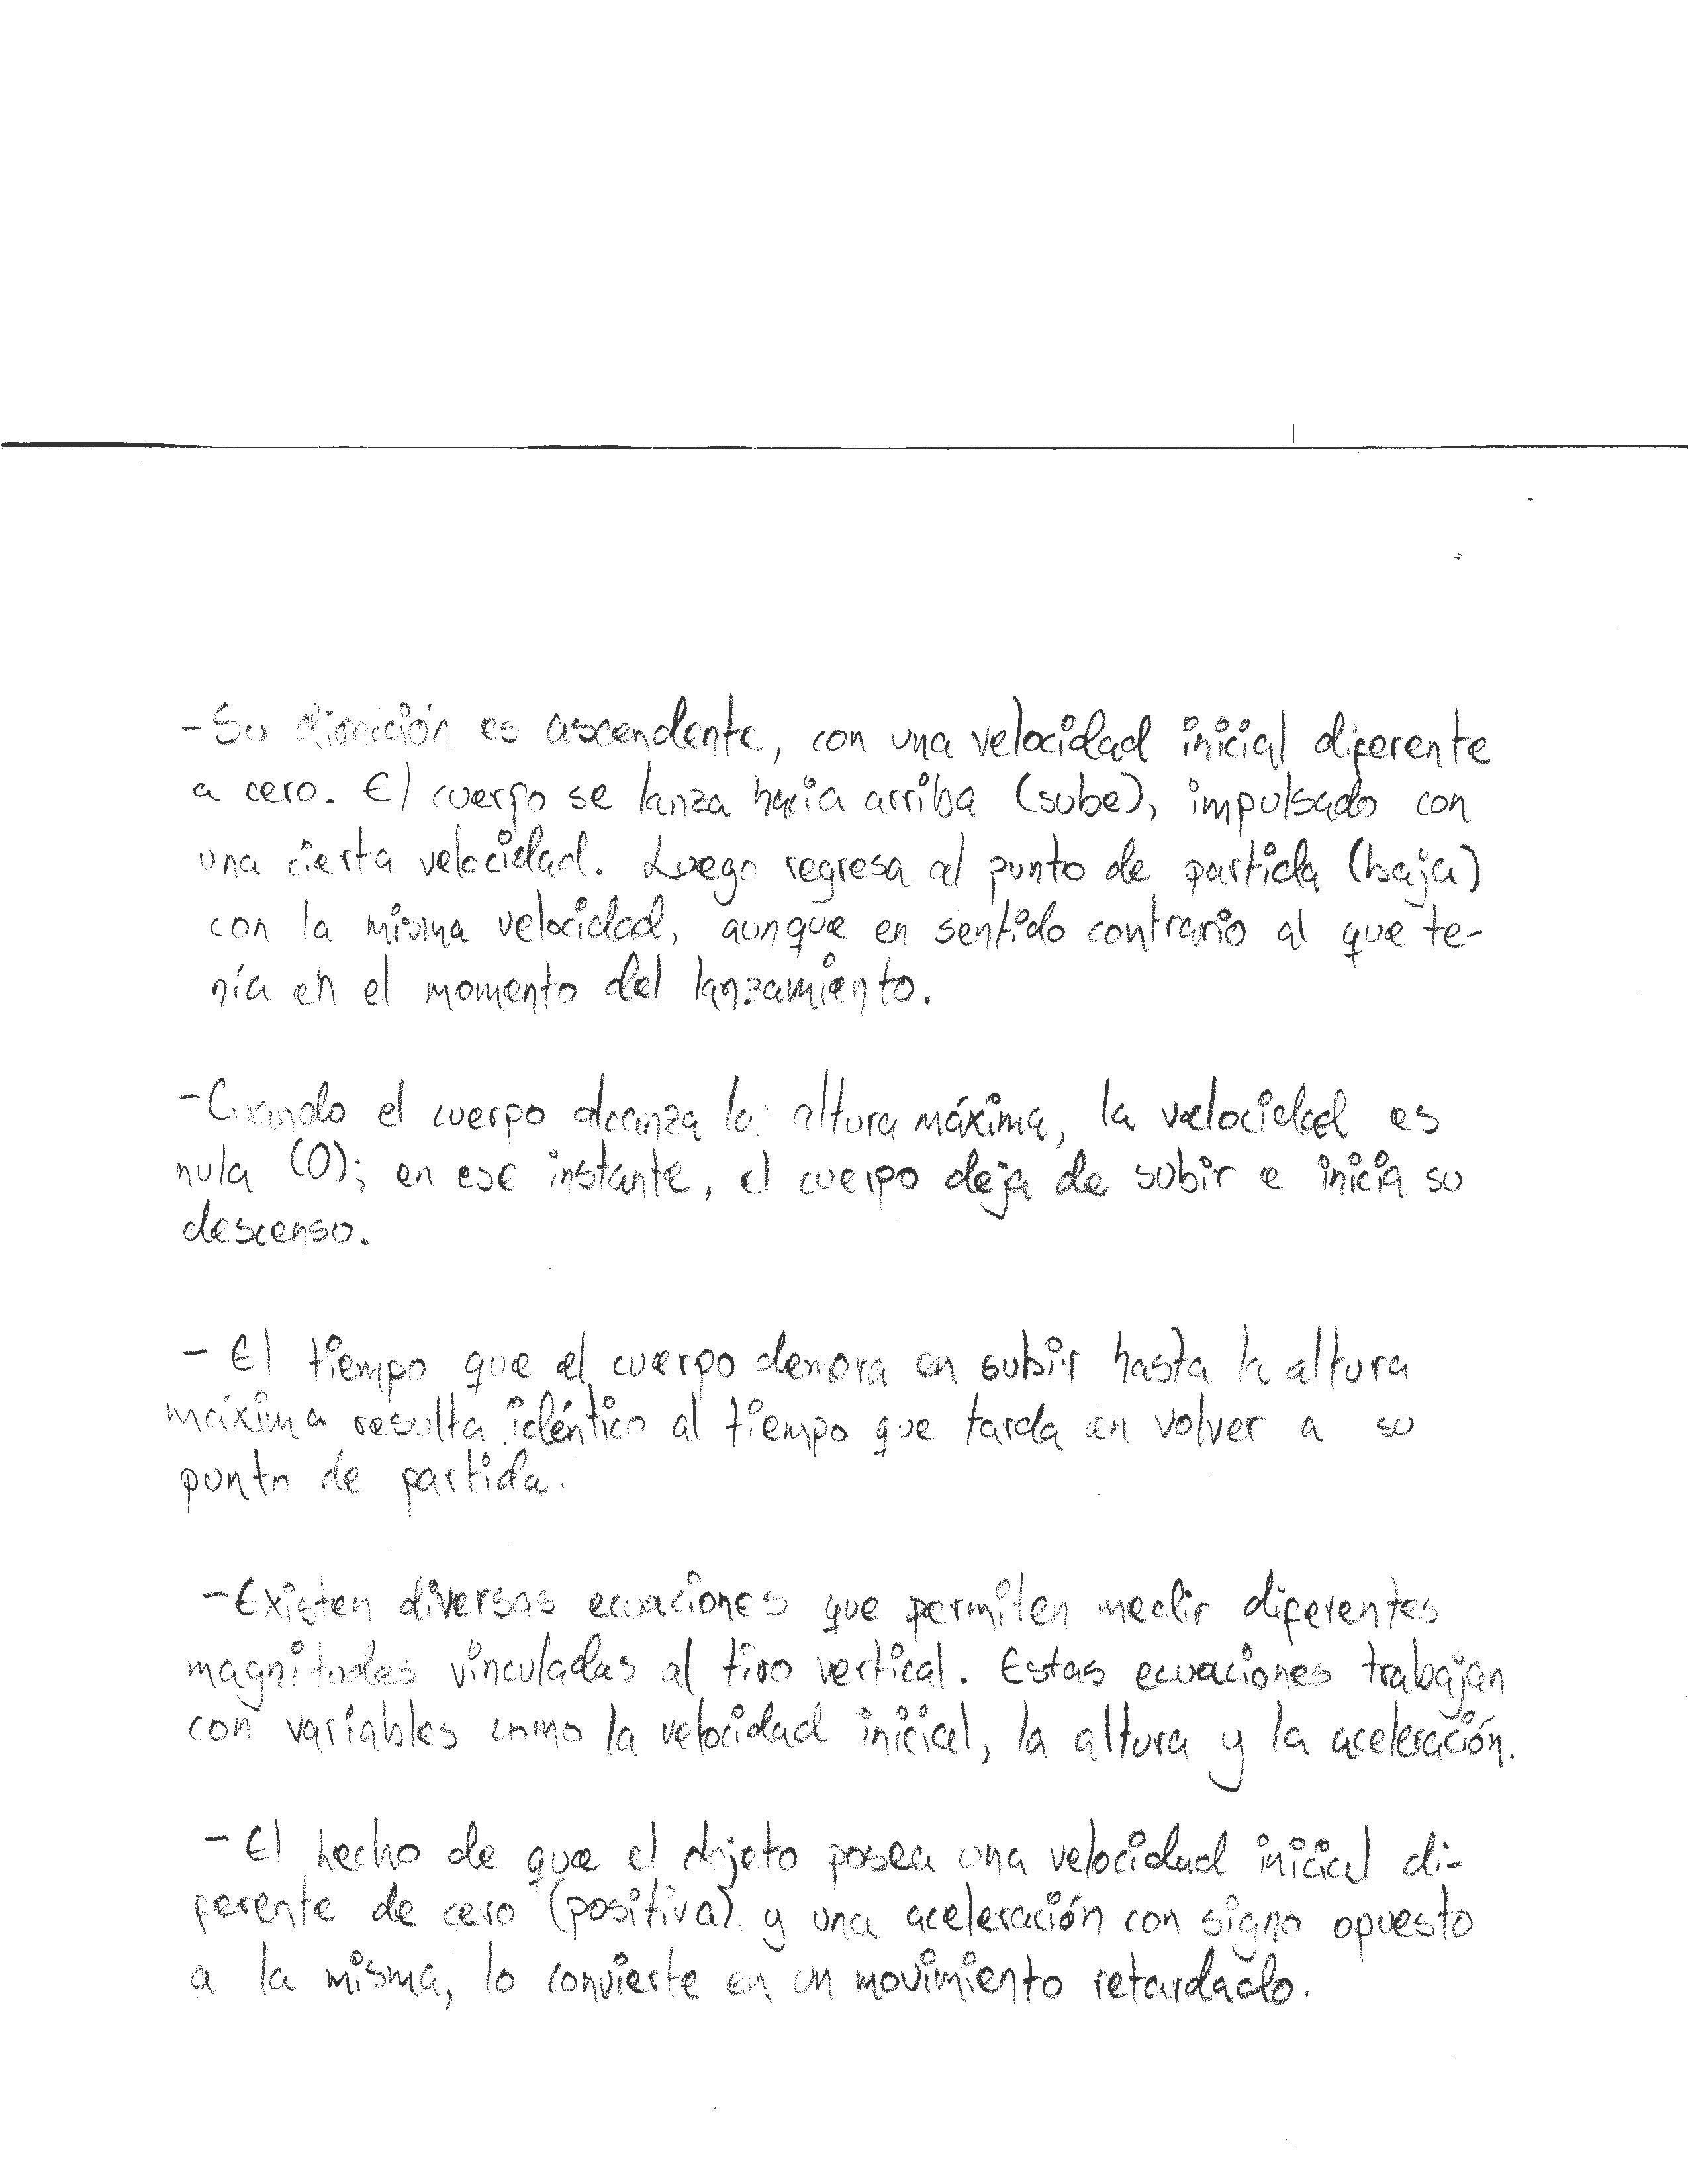 - Su dirección es ascendente, con una velocidad inicial diferente
a cero. El cuerpo se lanza hacia arriba (sube), impulsado con
una cierta velocidad. Luego regresa al punto de partida (baja)
con la misma velocidad, aunque en sentido contrario al que te-
nía en el momento del lanzamiento.
- Cuando el cuerpo alcanza la altura máxima, la velocidad es
nula (0); en ese instante, el cuerpo deja de subir e inicia su
descenso.
- El tiempo que el cuerpo demora en subir hasta la altura
máxima resulta idéntico al tiempo que tarda en volver a su
punto de partida.
- Existen diversas ecuaciones que permiten medir diferentes
magnitudes vinculadas al tiro vertical. Estas ecuaciones trabajan
con variables como la velocidad inicial, la altura y la aceleración.
- El hecho de que el objeto posea una velocidad inicial di-
ferente de cero (positiva) y una aceleración con signo opuesto
a la misma, lo convierte en un movimiento retardado.